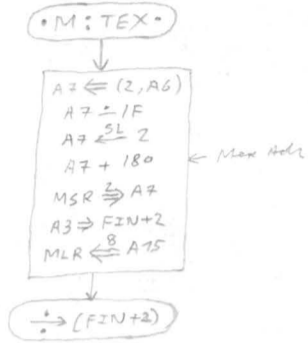 • M : TEX •
A7 ⇐ (2, A6)
A7 ∸ 1F
A7 ⟸SL 2
A7 + 180
MSR ⇒2 A7
A3 ⇒ FIN+2
MLR ⇐8 A15
÷→ (FIN+2)